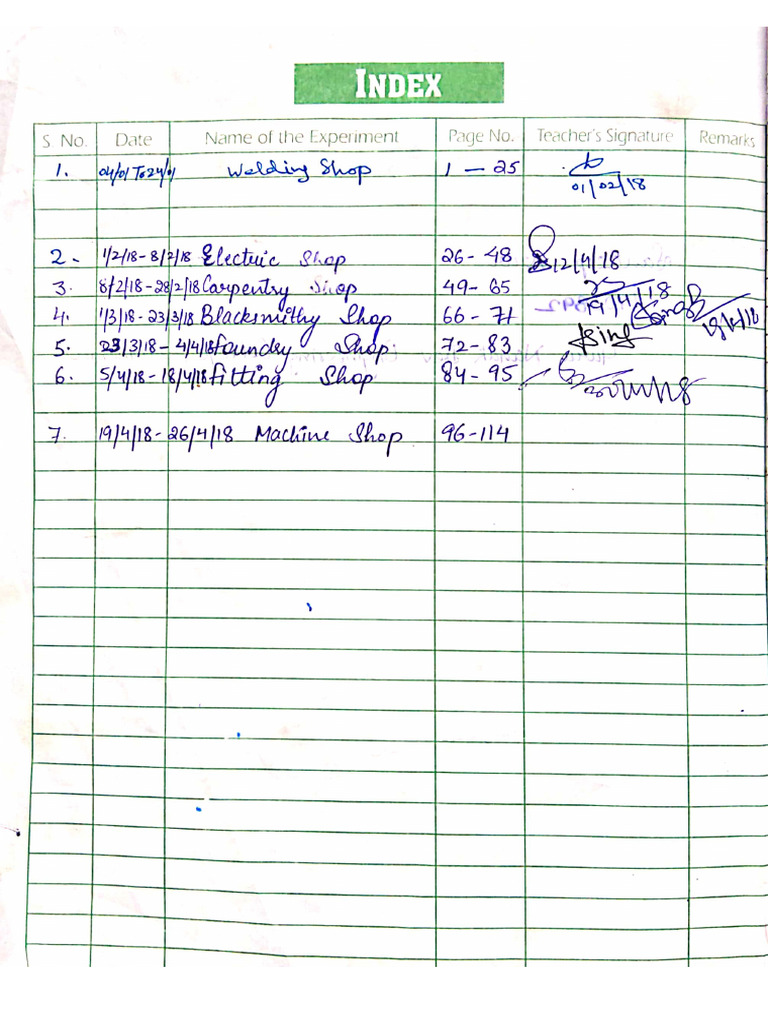 INDEX
S. No. Date Name of the Experiment Page No. Teacher's Signature Remarks
1. 04/01 To 24/01 Welding Shop 1 - 25
01/02/18
2. 1/2/18 - 8/2/18 Electric Shop 26 - 48 12/4/18
3. 8/2/18 - 28/2/18 Carpentry Shop 49 - 65
19/4/18
4. 1/3/18 - 23/3/18 Blacksmithy Shop 66 - 71
5. 23/3/18 - 4/4/18 foundry Shop 72 - 83
6. 5/4/18 - 18/4/18 fitting Shop 84 - 95
7. 19/4/18 - 26/4/18 Machine Shop 96 - 114